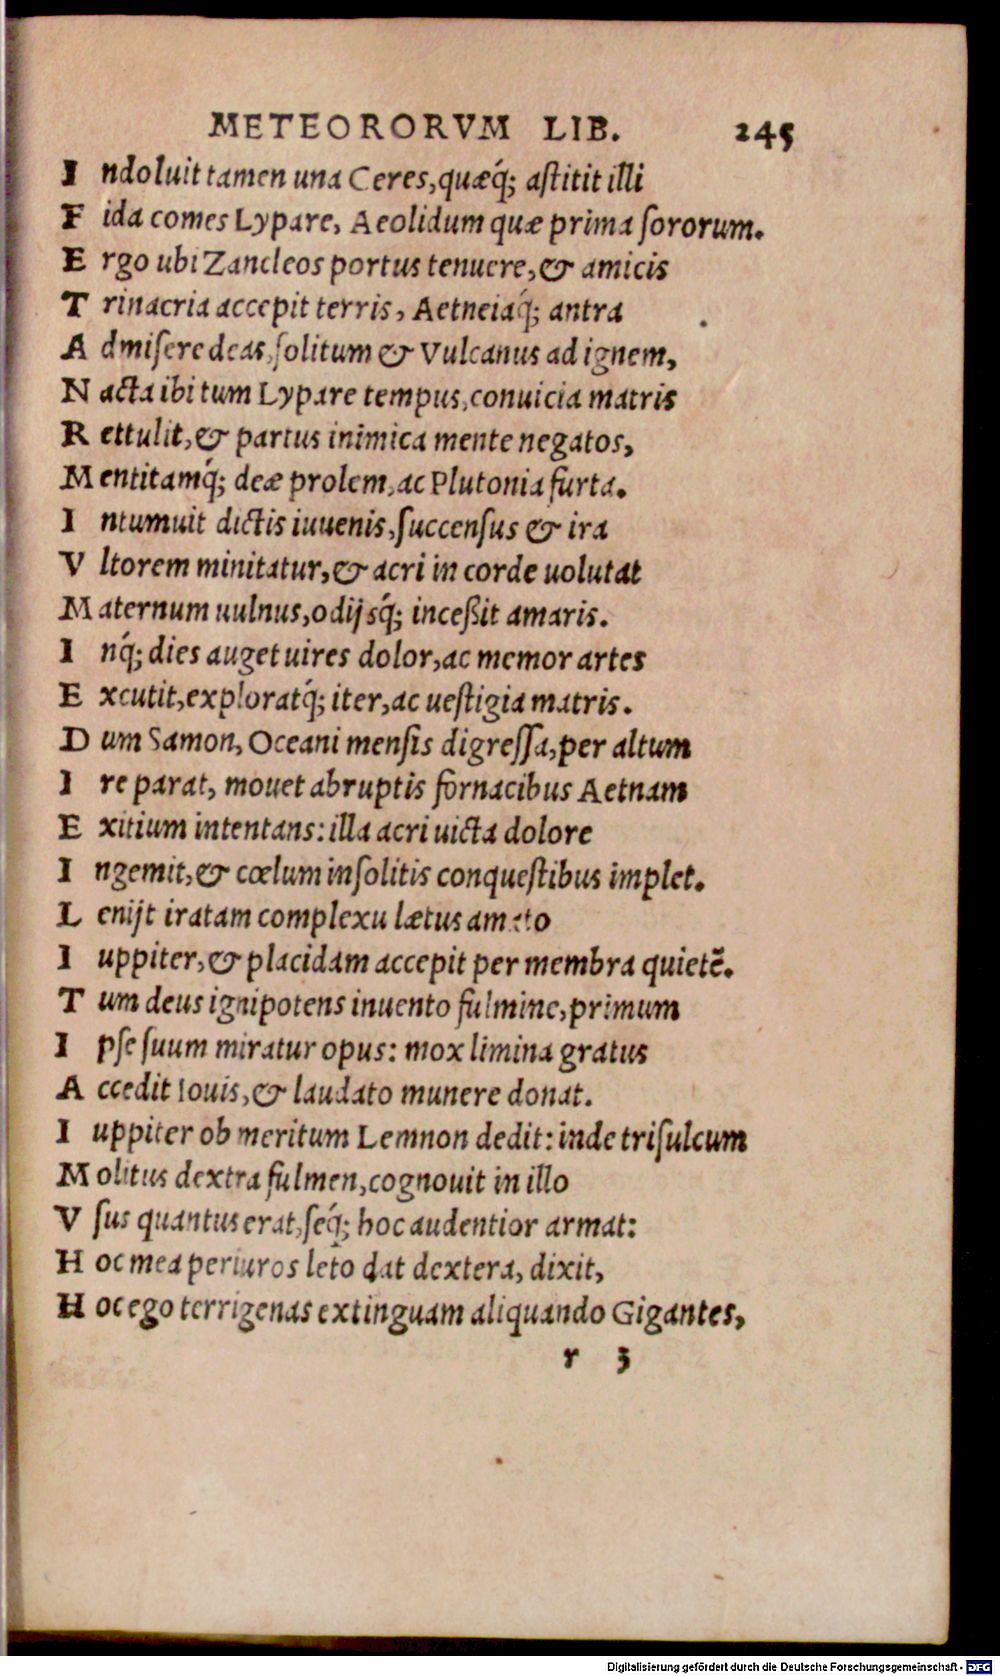 METEORORVM LIB. 245
I ndoluit tamen una Ceres, quæq́; astitit illi
F ida comes Lypare, Aeolidum quæ prima sororum.
E rgo ubi Zancleos portus tenuere, & amicis
T rinacria accepit terris, Aetneiaq́; antra
A dmisere deas, solitum & Vulcanus ad ignem,
N acta ibi tum Lypare tempus, conuicia matris
R ettulit, & partus inimica mente negatos,
M entitamq́; deæ prolem, ac Plutonia furta.
I ntumuit dictis iuuenis, succensus & ira
V ltorem minitatur, & acri in corde uolutat
M aternum uulnus, odijsq́; inceßit amaris.
I nq́; dies auget uires dolor, ac memor artes
E xcutit, exploratq́; iter, ac uestigia matris.
D um Samon, Oceani mensis digressa, per altum
I re parat, mouet abruptis fornacibus Aetnam
E xitium intentans: illa acri uicta dolore
I ngemit, & cœlum insolitis conquestibus implet.
L enijt iratam complexu lætus amato
I uppiter, & placidam accepit per membra quietẽ.
T um deus ignipotens inuento fulmine, primum
I pse suum miratur opus: mox limina gratus
A ccedit Iouis, & laudato munere donat.
I uppiter ob meritum Lemnon dedit: inde trisulcum
M olitus dextra fulmen, cognouit in illo
V sus quantus erat, seq́; hoc audentior armat:
H oc mea periuros leto dat dextera, dixit,
H oc ego terrigenas extinguam aliquando Gigantes,
r 3
Digitalisierung gefördert durch die Deutsche Forschungsgemeinschaft - DFG